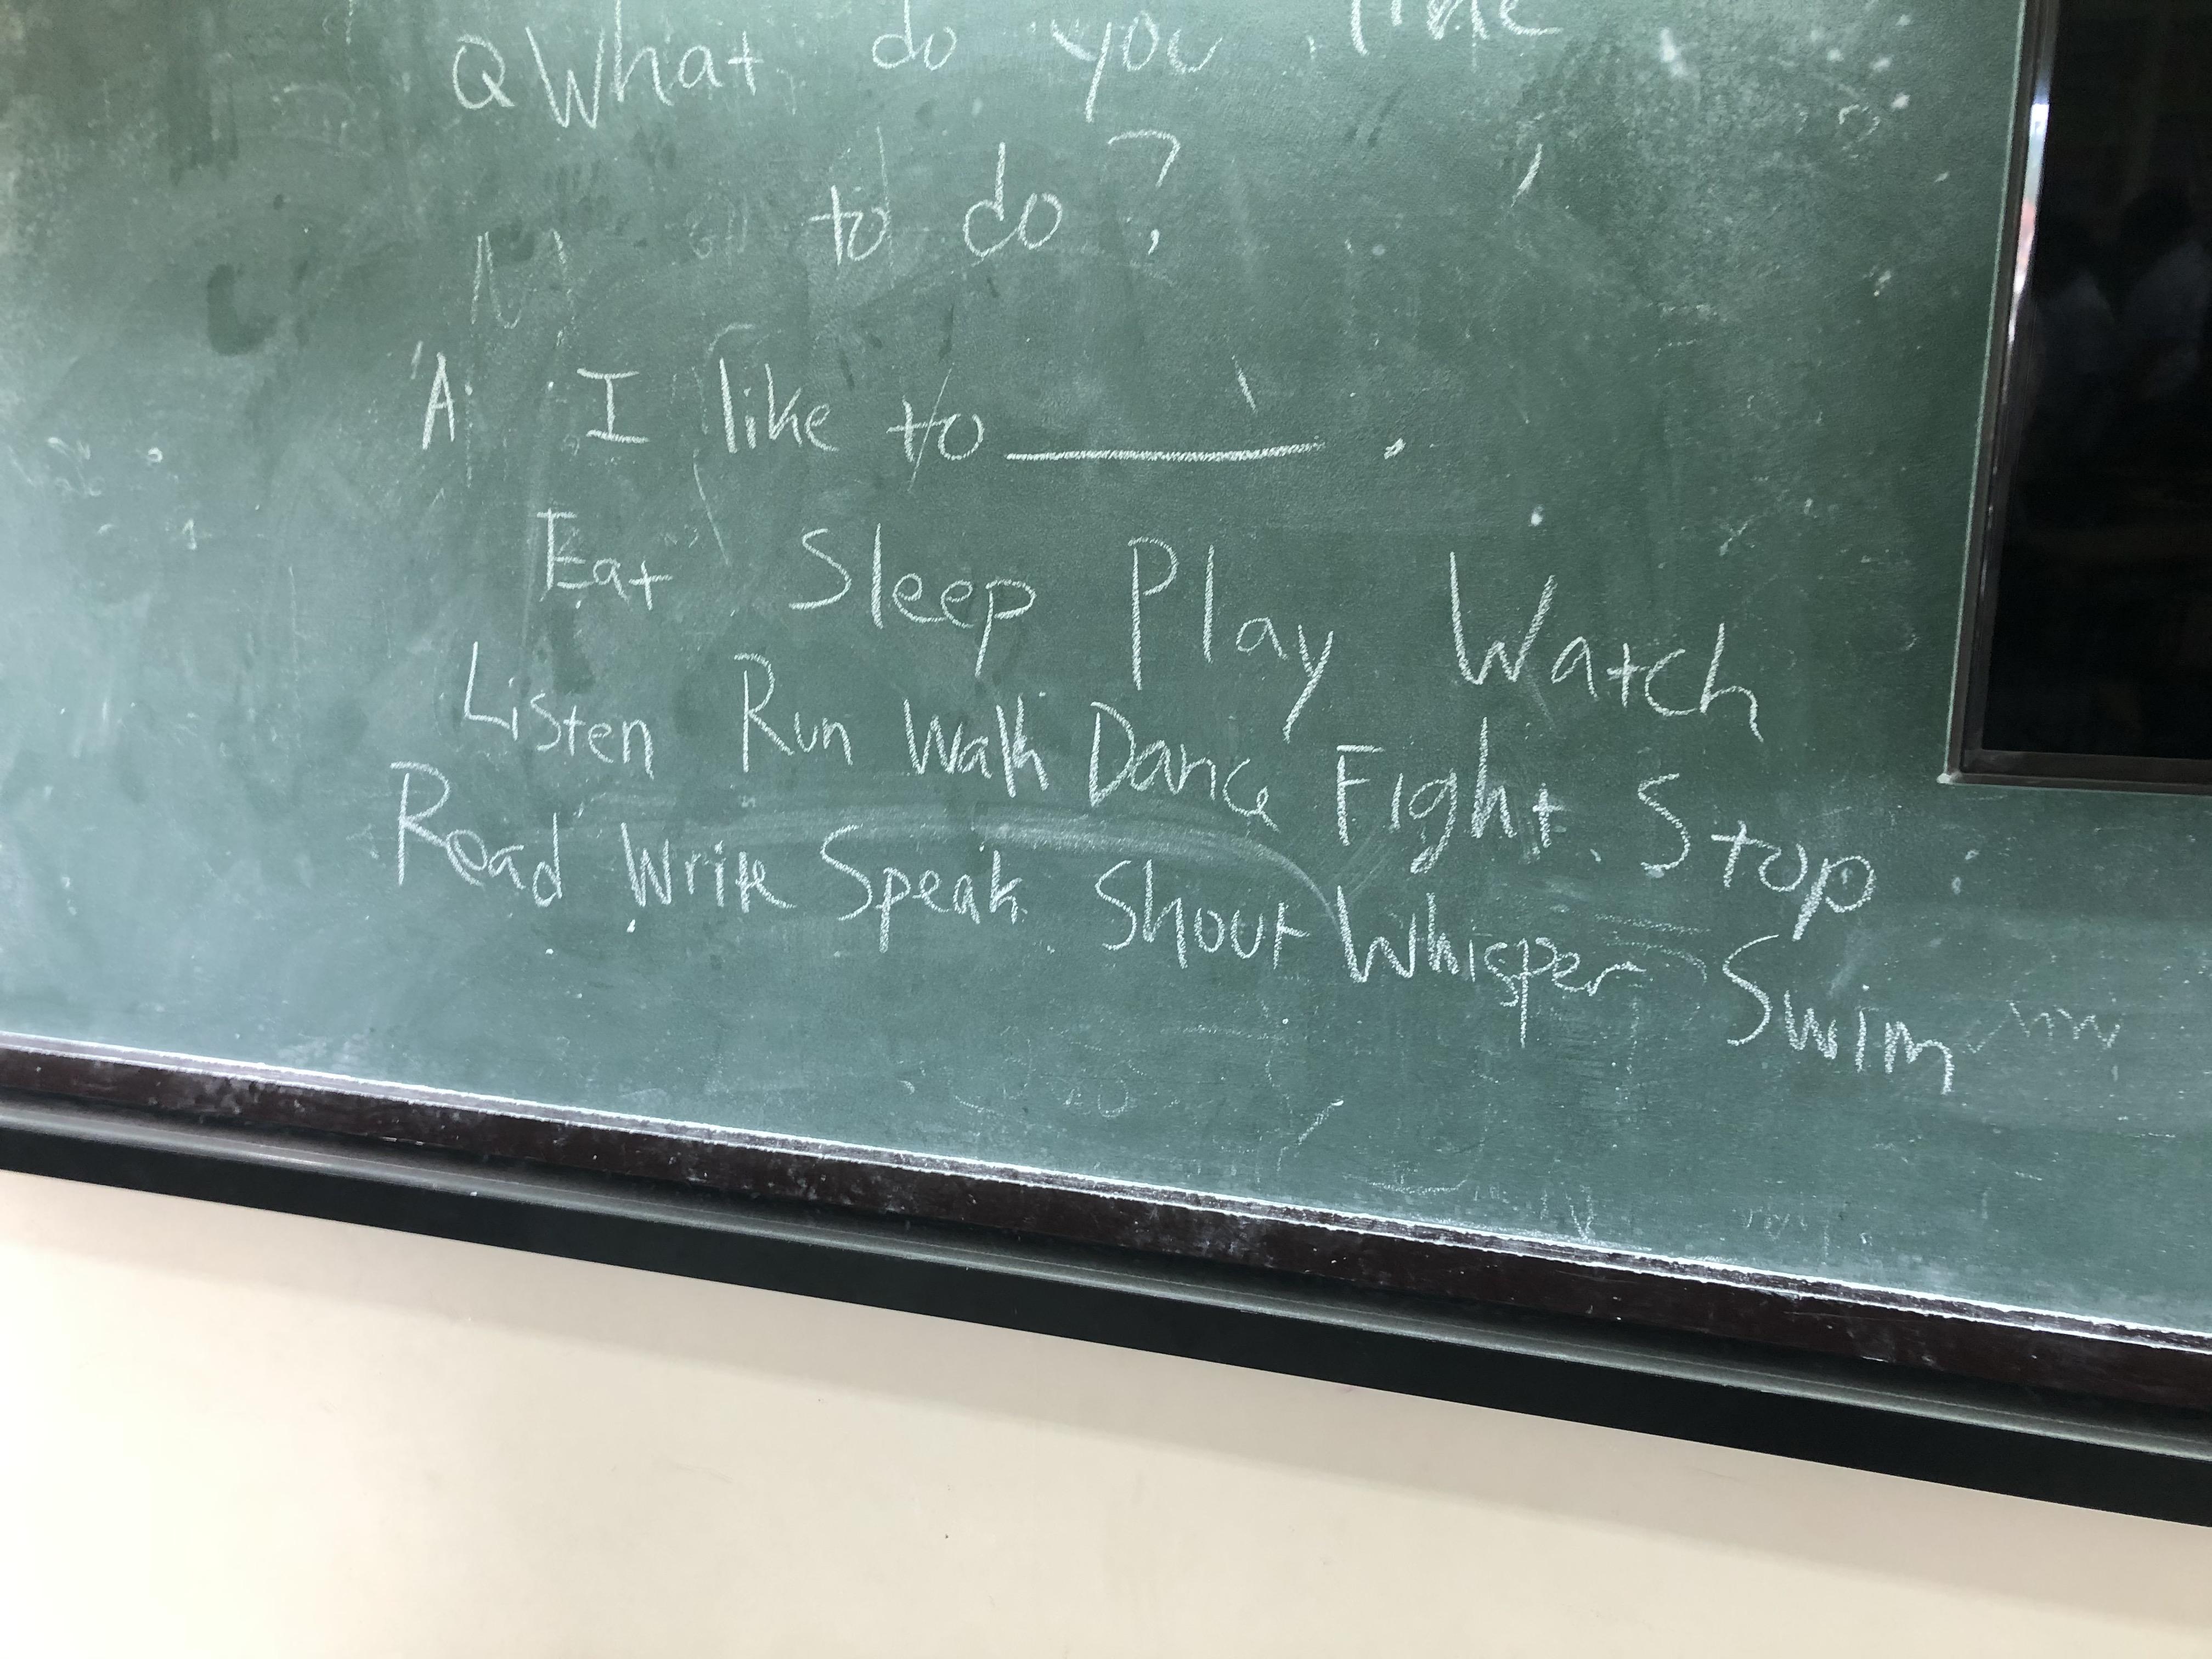 Q What do you like
to do?
A: I like to ________ .
Eat Sleep Play Watch
Listen Run Walk Dance Fight Stop
Read Write Speak Shout Whisper Swim